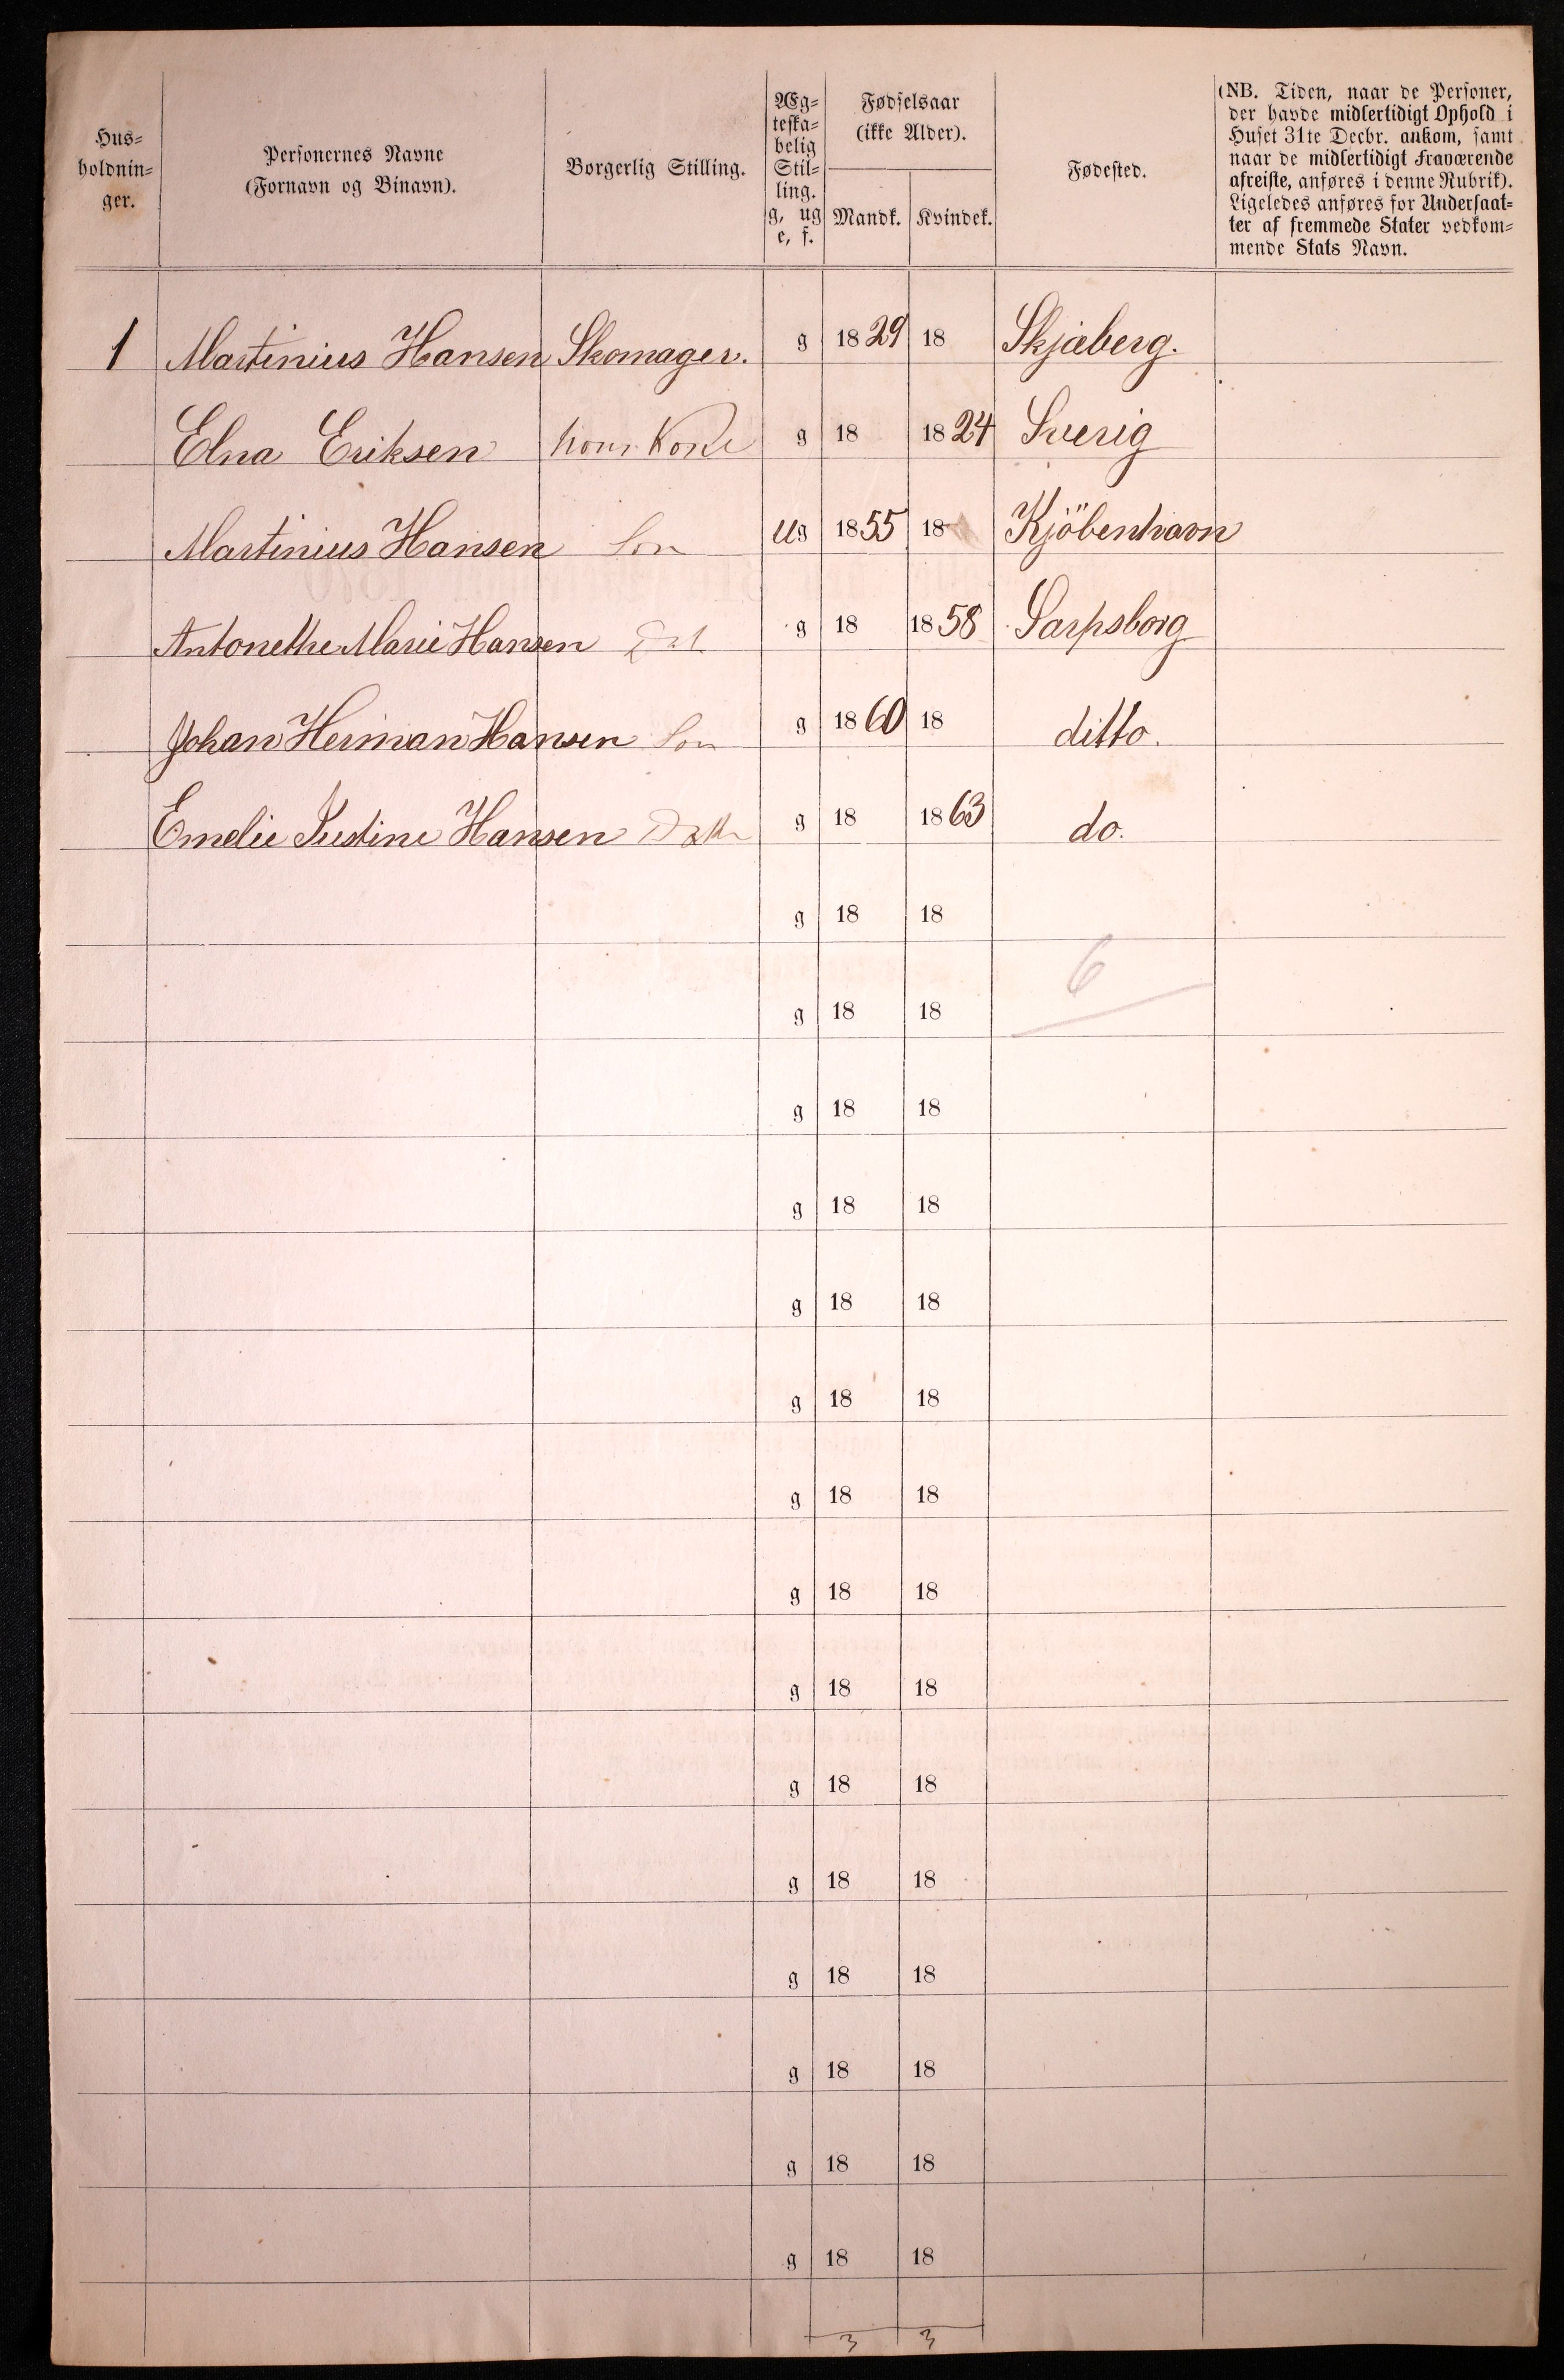 Hus=
holdnin=
ger.
Personernes Navne
(Fornavn og Binavn).
Borgerlig Stilling.
Æg=
teska=
belig
Stil=
ling.
g, ug
e, f.
Fødselsaar
(ikke Alder).
Mandk. Kvindek.
Fødested.
(NB. Tiden, naar de Personer,
der havde midlertidigt Ophold i
Huset 31te Decbr. ankom, samt
naar de midlertidigt Fraværende
afreiste, anføres i denne Rubrik).
Ligeledes anføres for Undersaat=
ter af fremmede Stater vedkom=
mende Stats Navn.
1 Martinius Hansen Skomager. g 1829 18 Skjæberg.
Elna Eriksen hans Kone g 18 1824 Sverig
Martinius Hansen Søn ug 1855 18 Kjöbenhavn
Antonethe Marie Hansen Dat g 18 1858 Sarpsborg
Johan Herman Hansen Søn g 1860 18 ditto.
Emelie Justine Hansen g 18 1863 do.
g 18 18
6
g 18 18
g 18 18
g 18 18
g 18 18
g 18 18
g 18 18
g 18 18
g 18 18
g 18 18
g 18 18
g 18 18
g 18 18
g 18 18
g 18 18
3 3